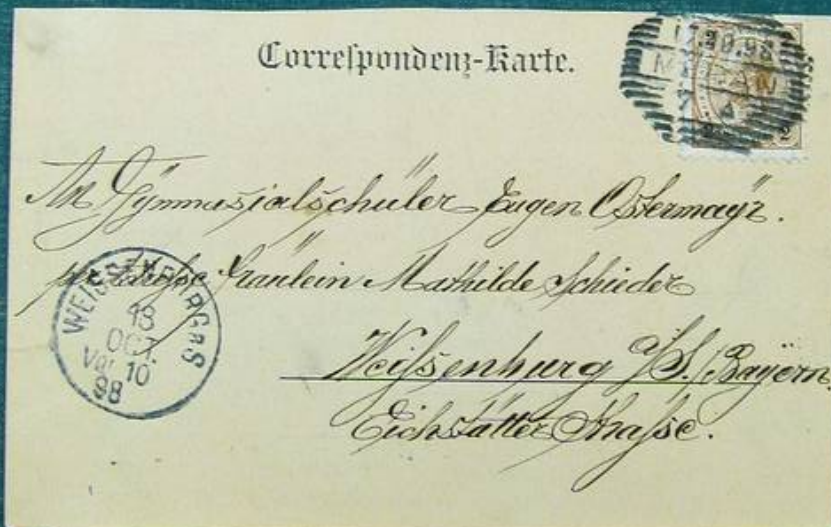 Correspondenz-Karte.
MERAN
2
An Gymnasialschüler Eugen Ostermayr.
pr. Adresse Fräulein Mathilde Schieder
Weißenburg a/S. (Bayern.
Eichstätter Straße.
WEISSENBURG a S
13
OCT.
Vor. 10
98